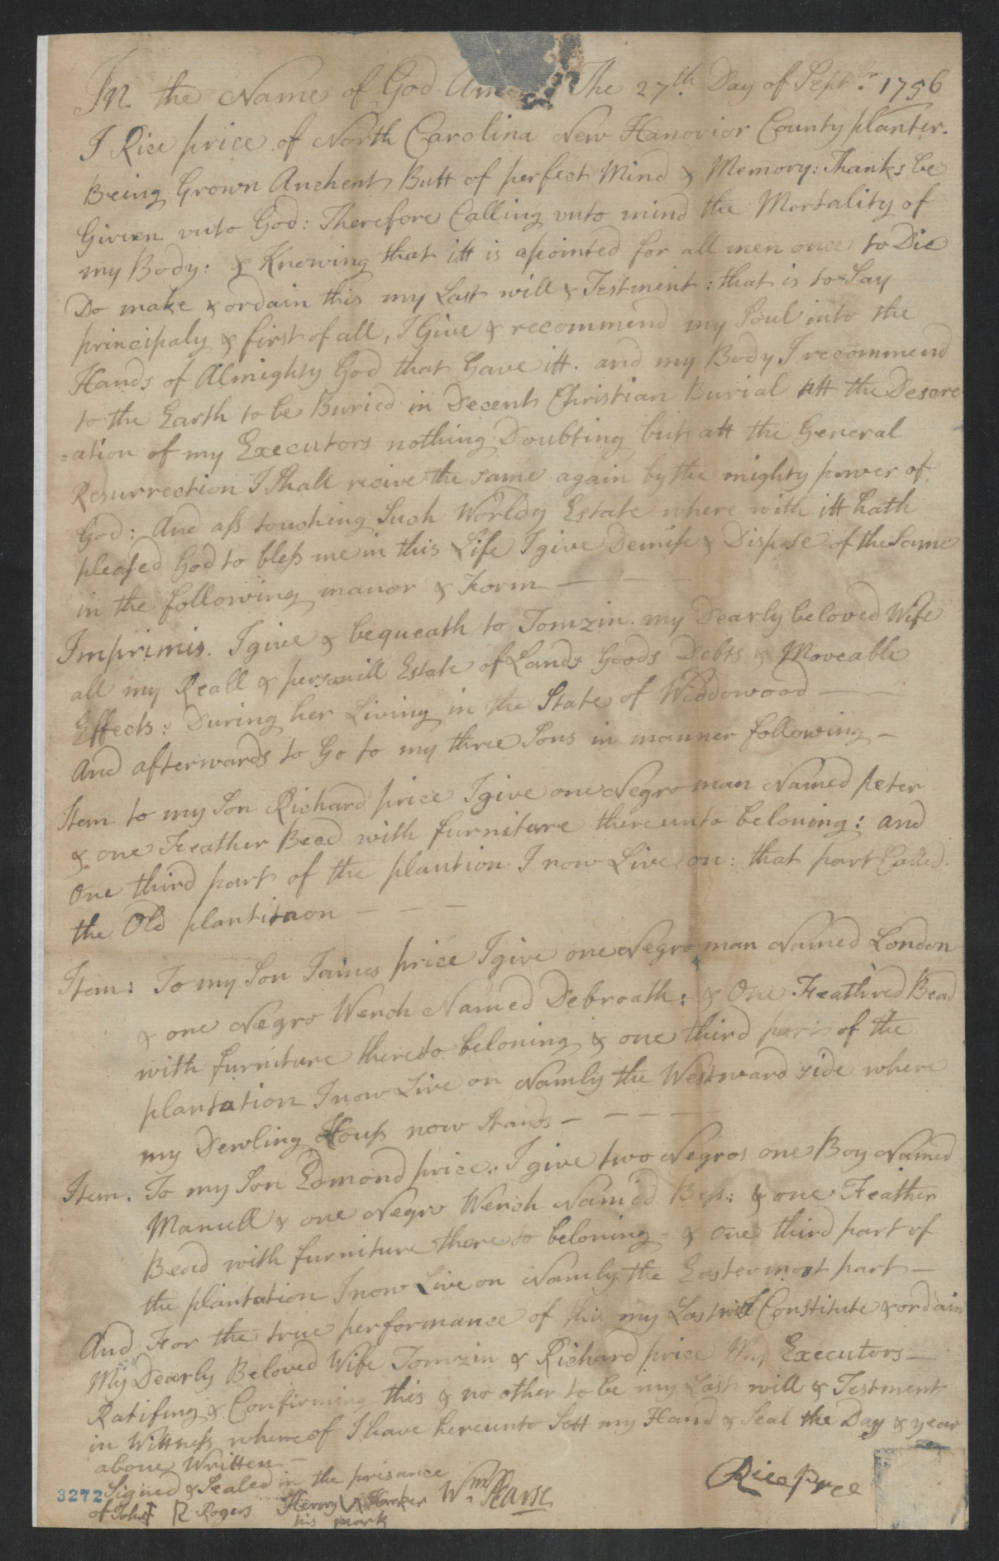 In the Name of God Amen The 27th Day of Septbr 1756
I Rice price of North Carolina New Hanovior County planter.
Being Grown Anchent Butt of perfect Mind & Memory: Thanks be
Given unto God: Therefore Calling unto mind the Mortality of
my Body: & Knowing that itt is apointed for all men once to Die
Do make & ordain this my Last will & Testment: that is to Say
principaly & first of all, I Give & recommend my Soul into the
Hands of Almighty God that Gave itt. and my Body I recommend
to the Earth to be Buried in Decent Christian Burial att the Descre
=ation of my Executors nothing Doubting but att the General
Resurrection I Shall recive the same again by the mighty power of
God: And ass touching Such Worldy Estate where with itt hath
pleased God to bless me in this Life I give Demise & Dispose of the Same
in the following manor & Form —
Imprimis. I give & bequeath to Tomzin my Dearly beloved Wife
all my Reall & personill Estate of Lands Goods Debts & Moveable
Effects: During her Living in the State of Widdowood —
And afterwards to Go to my three Sons in manner following —
Item to my Son Richard price I give one Negro man Named peter
& one Feather Bead with furniture thereunto beloning: and
One third part of the plantion I now Live on: that part Called
the Old plantitaon — — —
Item: To my Son James price I give one Negro man Named London
& one Negro Wench Named Debroath: & One Feathred Bead
with furniture thereto beloning & one third part of the
plantation I now Live on Namly the Westward side where
my Dewling House now Stands — — — —
Item. To my Son Edmond price. I give two Negros one Boy Named
Manuell & one Negro Wench Named Bess: & one Feather
Bead with furniture thereto beloning — & one third part of
the plantation I now Live on Namly the Eastermost part —
And For the true performance of this my Last will Constitute & ordain
My Dearly Beloved Wife Tomzin & Richard price My Executors —
Ratifing & Confirming this & no other to be my Last will & Testment
in Wittness whereof I have hereunto Sett my Hand & Seal the Day & year
above Written —
Signed & Sealed in the prisance
3272 of John R Rogers Henry Harker Wm Pearse Rice Price
his mark